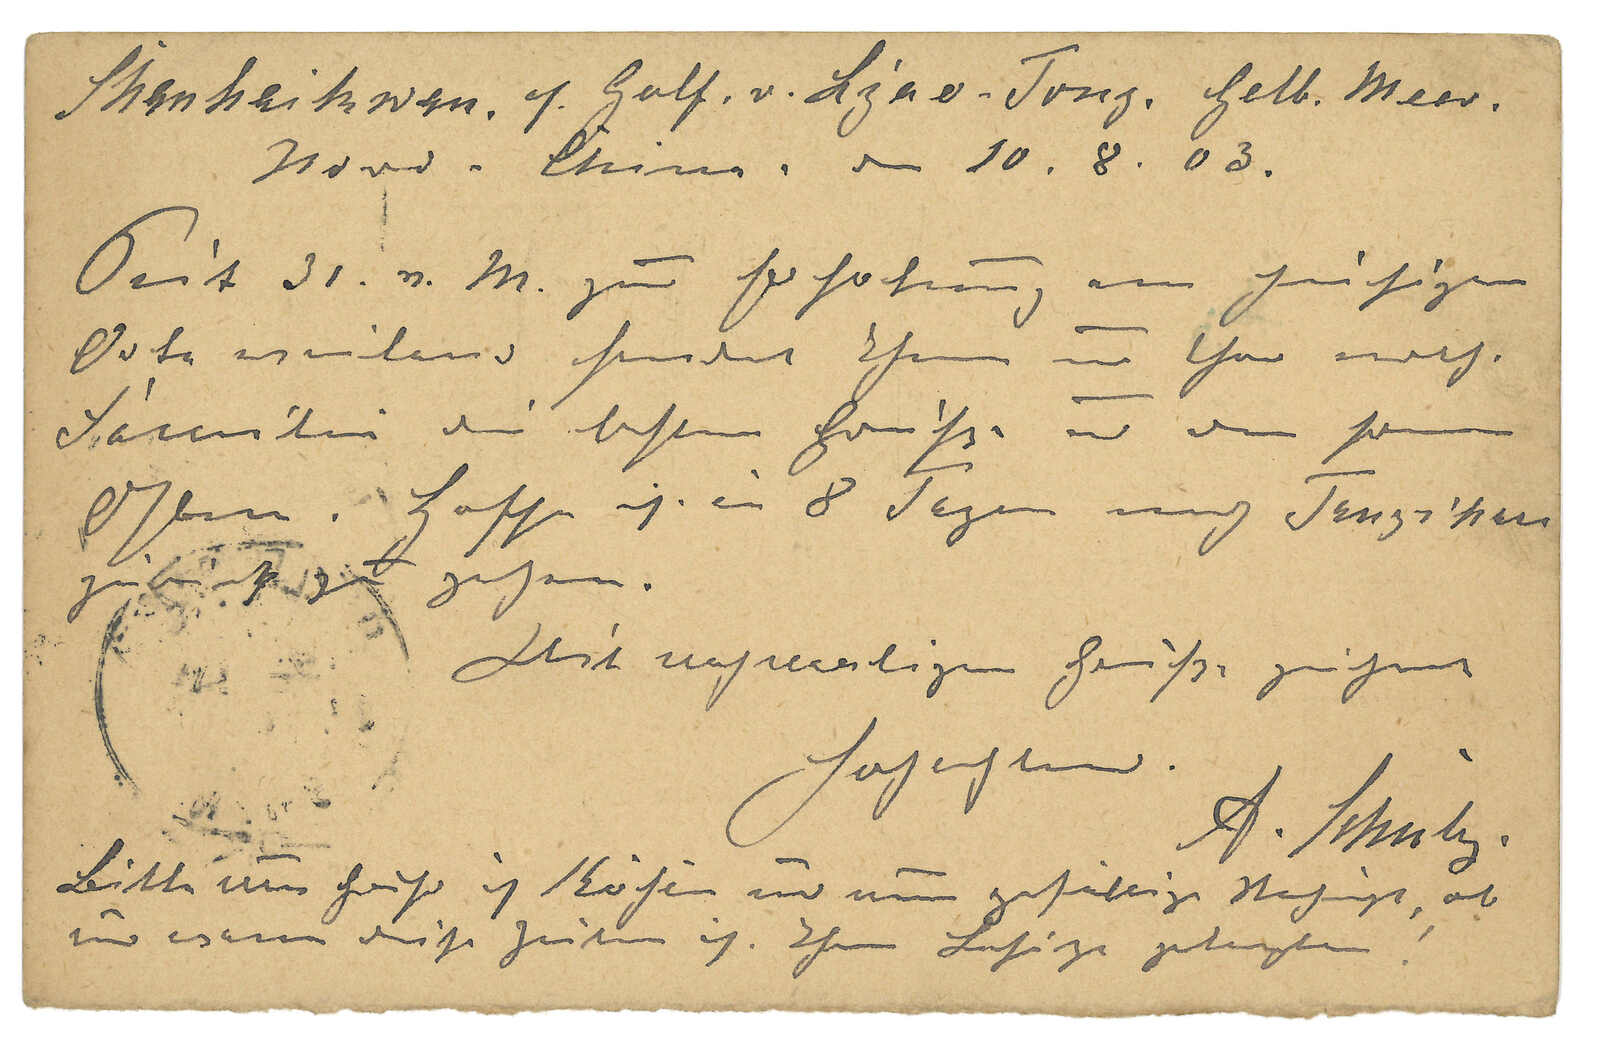 Shanhaikwan. i. Golf. v. Liao-Tong. Gelb. Meer.
Nord-China. den 10. 8. 03.
Seit 31. v. M. zur Erholung am hiesigen
Orte weilend sendet Ihnen und Ihrer werth.
Familie die besten Grüße aus dem fernen
Osten. Hoffe ich in 8 Tagen nach
zurück zu gehen.
Mit nochmaligen Grüßen zeichnet
hochachtend.
A. Schulz.
Bitte um gefällige Nachricht, ob
und wann diese Zeilen in Ihren Besitze gelangten!